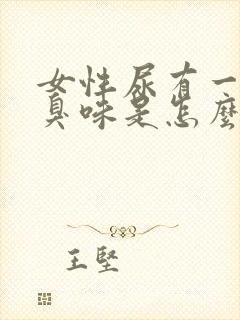 女性尿有一
臭味是怎麼
王堅